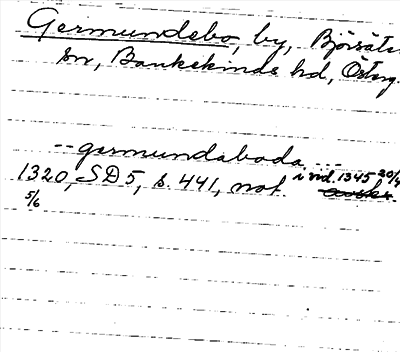 Germundebo, by, Björsäters
sn, Bankekinds hd, Österg.
-- germundaboda ---
1320, SD 5, s. 441, not. i vid. 1345 20/4
5/6